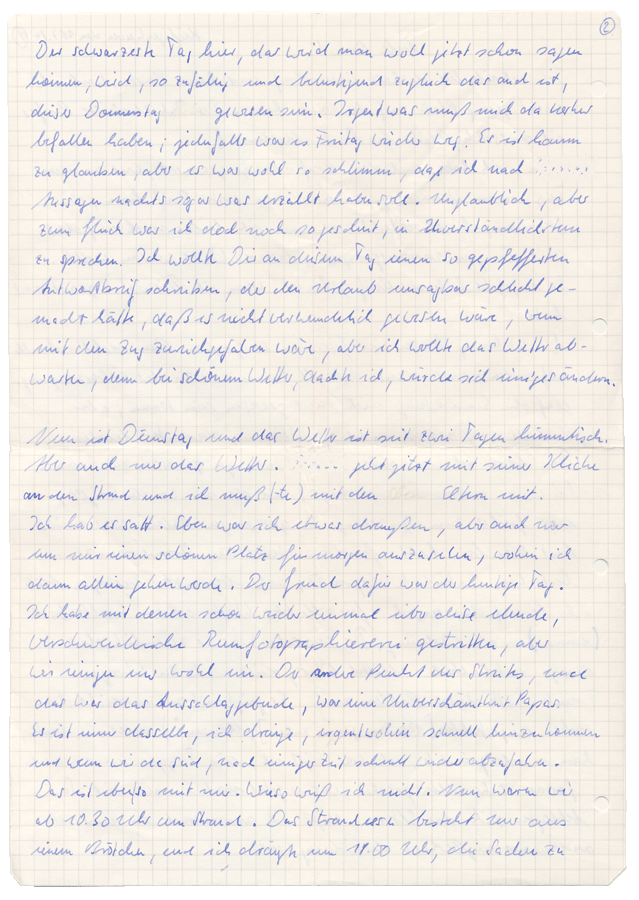 2
Der schwarzeste Tag hier, das wird man wohl jetzt schon sagen
können, wird, so zufällig und belustigend zugleich das auch ist,
dieser Donnerstag gewesen sein. Irgentwas muß mich da vorher
befallen haben; jedenfalls war es Freitag wieder weg. Es ist kaum
zu glauben, aber es war wohl so schlimm, daß ich nach
Aussagen nachts sogar was erzählt haben soll. Unglaublich, aber
zum Glück war ich doch noch so gescheit, in Unverständlichstem
zu sprechen. Ich wollte Dir an diesem Tag einen so gepfefferten
Antwortbrief schreiben, der den Urlaub unsagbar schlecht ge-
macht hätte, daß es nicht verwunderlich gewesen wäre, wenn
mit dem Zug zurückgefahren wäre, aber ich wollte das Wetter ab-
warten, denn bei schönem Wetter, dachte ich, würde sich einiges ändern.
Nun ist Dienstag und das Wetter ist seit zwei Tagen himmlisch.
Aber auch nur das Wetter. geht jetzt mit seiner Clique
an den Strand und ich muß (-te) mit den Eltern mit.
Ich hab es satt. Eben war ich etwas draußen, aber auch nur
um mir einen schönen Platz für morgen auszusuchen, wohin ich
dann allein gehen werde. Der Grund dafür war der heutige Tag.
Ich habe mit denen schon wieder einmal über diese elende,
verschwenderische Rumfotographiererei gestritten, aber
wir einigen uns wohl nie. Der andere Punkt des Streits, und
das war das Ausschlaggebende, war eine Unverschämtheit Papas.
Es ist immer dasselbe, ich dränge, irgentwohin schnell hinzukommen
und wenn wir da sind, nach einiger Zeit schnell wieder abzufahren.
Das ist ebenso mit mir. Wieso weiß ich nicht. Nun waren wir
ab 10.30 Uhr am Strand. Das Strandessen besteht nur aus
einem Brötchen, und ich drängte um 11.00 Uhr, die Sachen zu